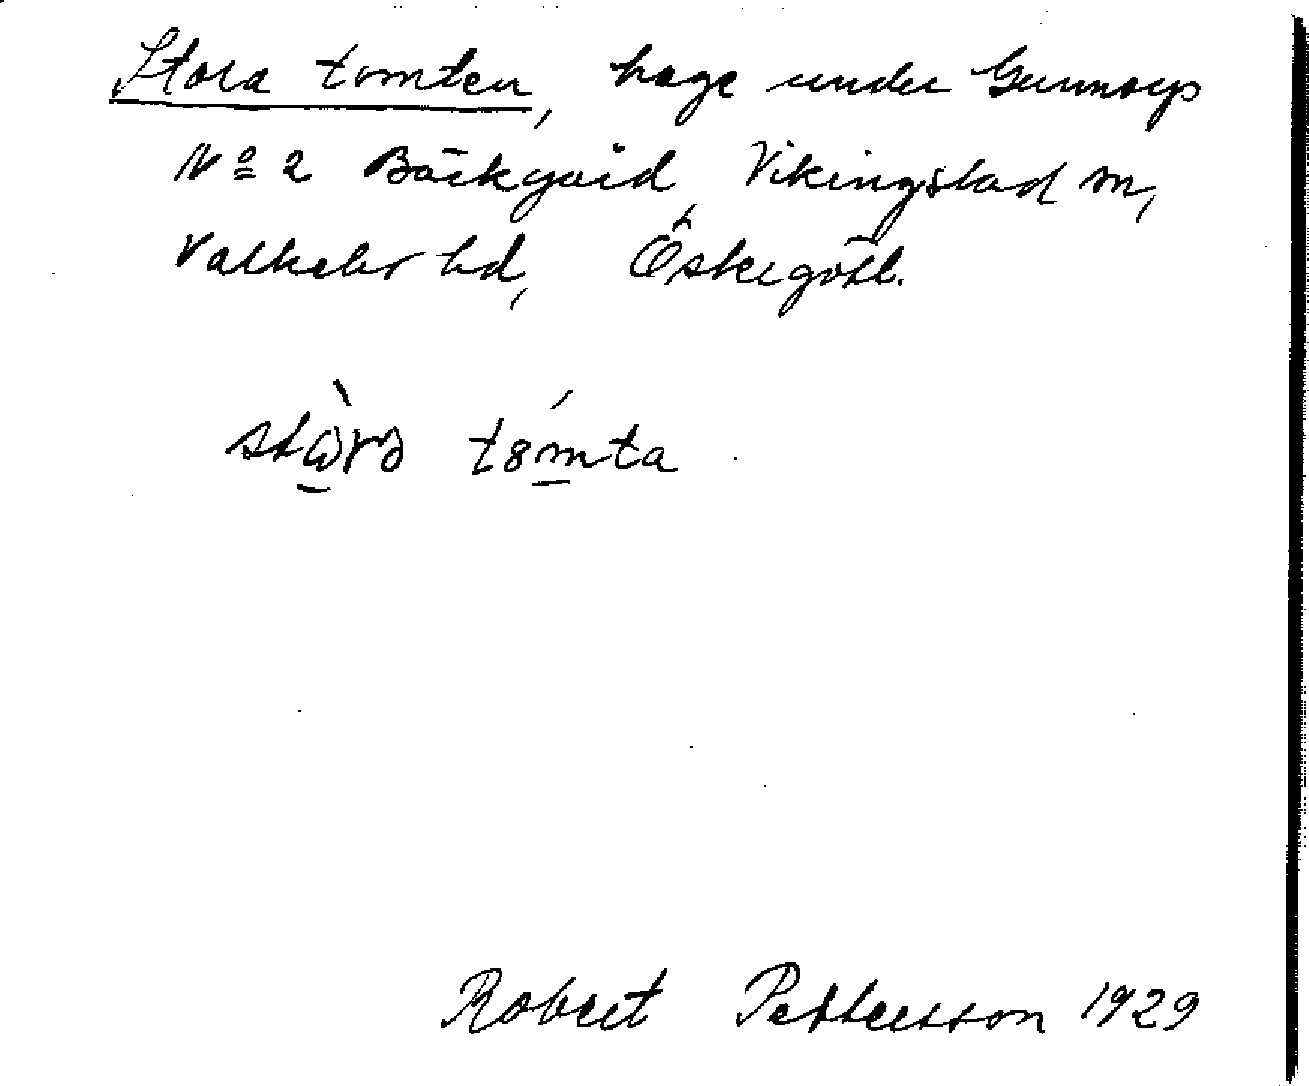 Stora tomten, hage under Gunnorp
Nº 2 Bäckgård, Vikingstad sn,
Valkebo hd, Östergötl.
stὼrə tȣ́mta
Robert Pettersson 1929